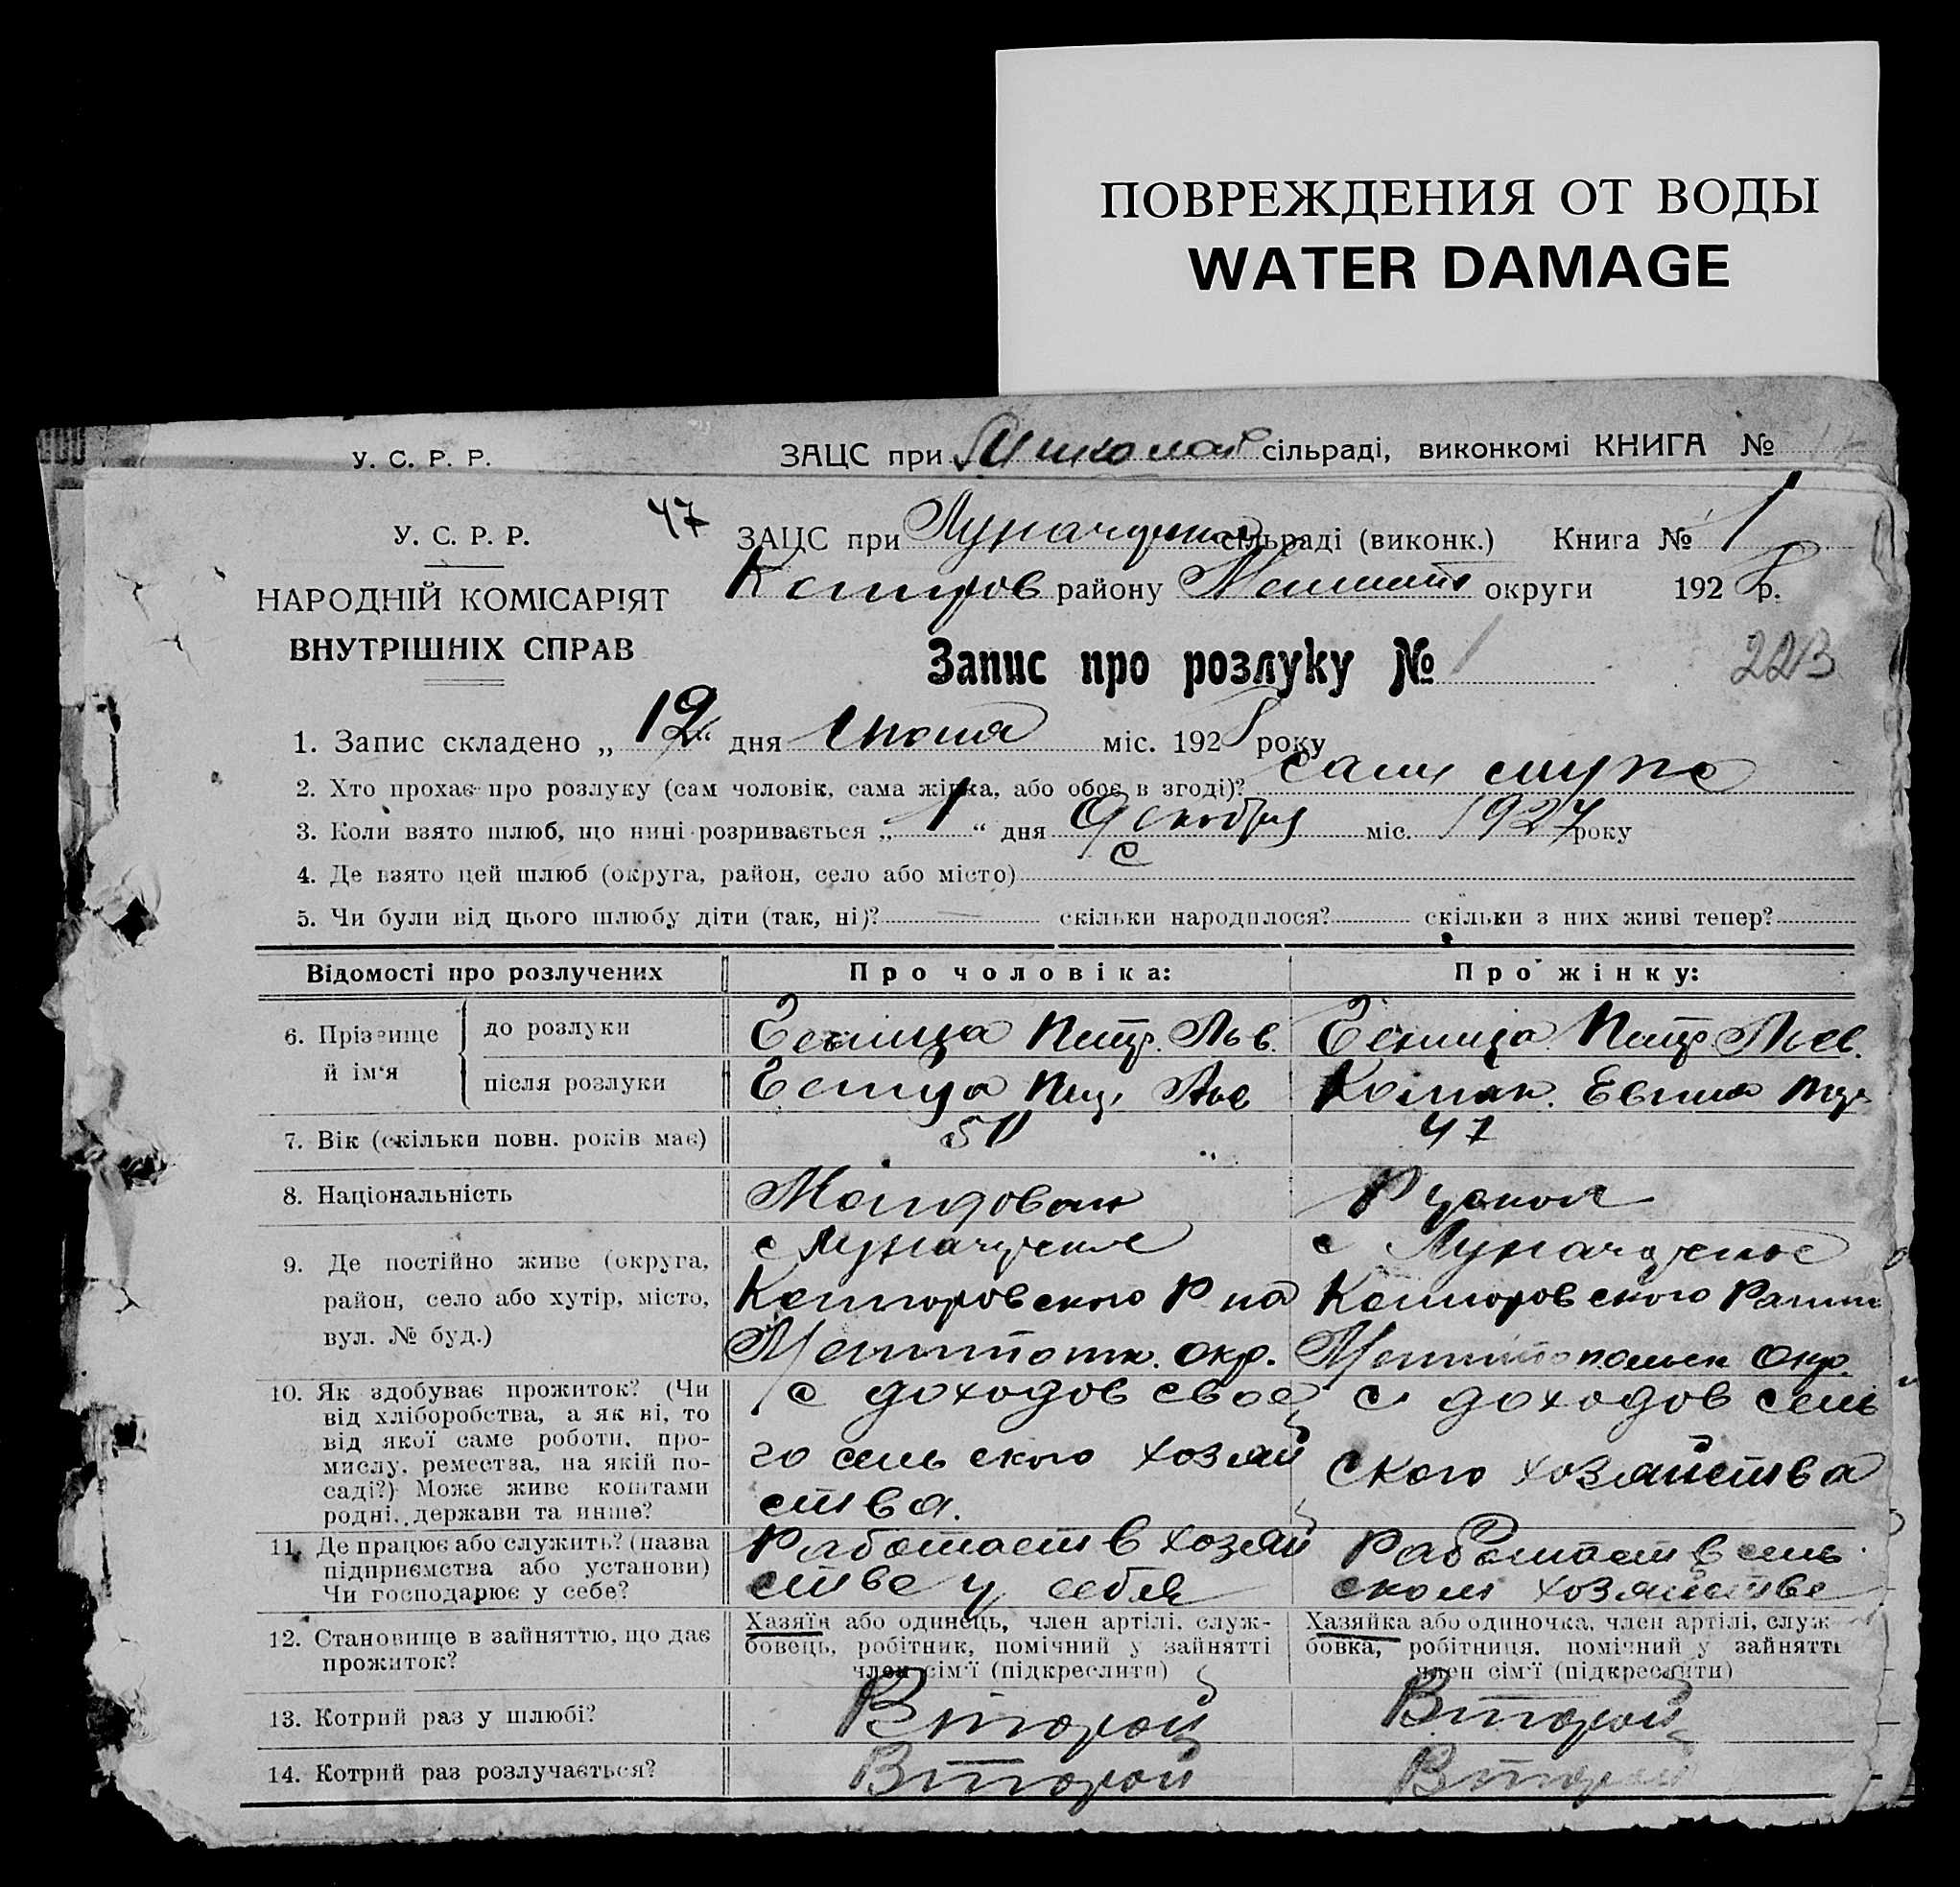 ПОВРЕЖДЕНИЯ ОТ ВОДЫ
WATER DAMAGE
У. С. Р. Р. ЗАЦС при сільраді, виконкомі КНИГА №
47
У. С. Р. Р.
НАРОДНІЙ КОМІСАРІЯТ
ВНУТРІШНІХ СПРАВ
ЗАЦС при сільраді (виконк.) Книга № 1
району округи 1928 р.
Запис про розлуку № 1
223
1. Запис складено „12“ дня Июня міс. 1928 року
2. Хто прохає про розлуку (сам чоловік, сама жінка, або обоє в згоді)?
3. Коли взято шлюб, що нині розривається „1“ дня міс. 1927 року
4. Де взято цей шлюб (округа, район, село або місто) с
5. Чи були від цього шлюбу діти (так, ні)? скільки народилося? скільки з них живі тепер?
Відомості про розлучених
Про чоловіка:
Про жінку:
6. Прізвище й ім'я
до розлуки
Петр. Льв.
Петр Льв.
після розлуки
7. Вік (скільки повн. років має)
47
8. Національність
Молдован
Руская
9. Де постійно живе (округа,
район, село або хутір, місто,
вул. № буд.)
с
Р на
окр.
с
окр.
10. Як здобуває прожиток? (Чи
від хліборобства, а як ні, то
від якої саме роботи, про-
мислу, ремества, на якій по-
саді?) Може живе коштами
родні, держави та инше?
с доходов свое
го сельского хозяй
ства.
с доходов сель
ского хозяйства
11. Де працює або служить? (назва
підприємства або установи)
Чи господарює у себе?
Работает в хозяй
стве у себя
Работает в сель
ском хозяйстве
12. Становище в зайняттю, що дає
прожиток?
Хазяїн або одинець, член артілі, служ-
бовець, робітник, помічний у зайнятті
член сім'ї (підкреслити)
Хазяйка або одиночка, член артілі, служ-
бовка, робітниця, помічний у зайнятті
член сім'ї (підкреслити)
13. Котрий раз у шлюбі?
Второй
Второй
14. Котрий раз розлучається?
Второй
Второй